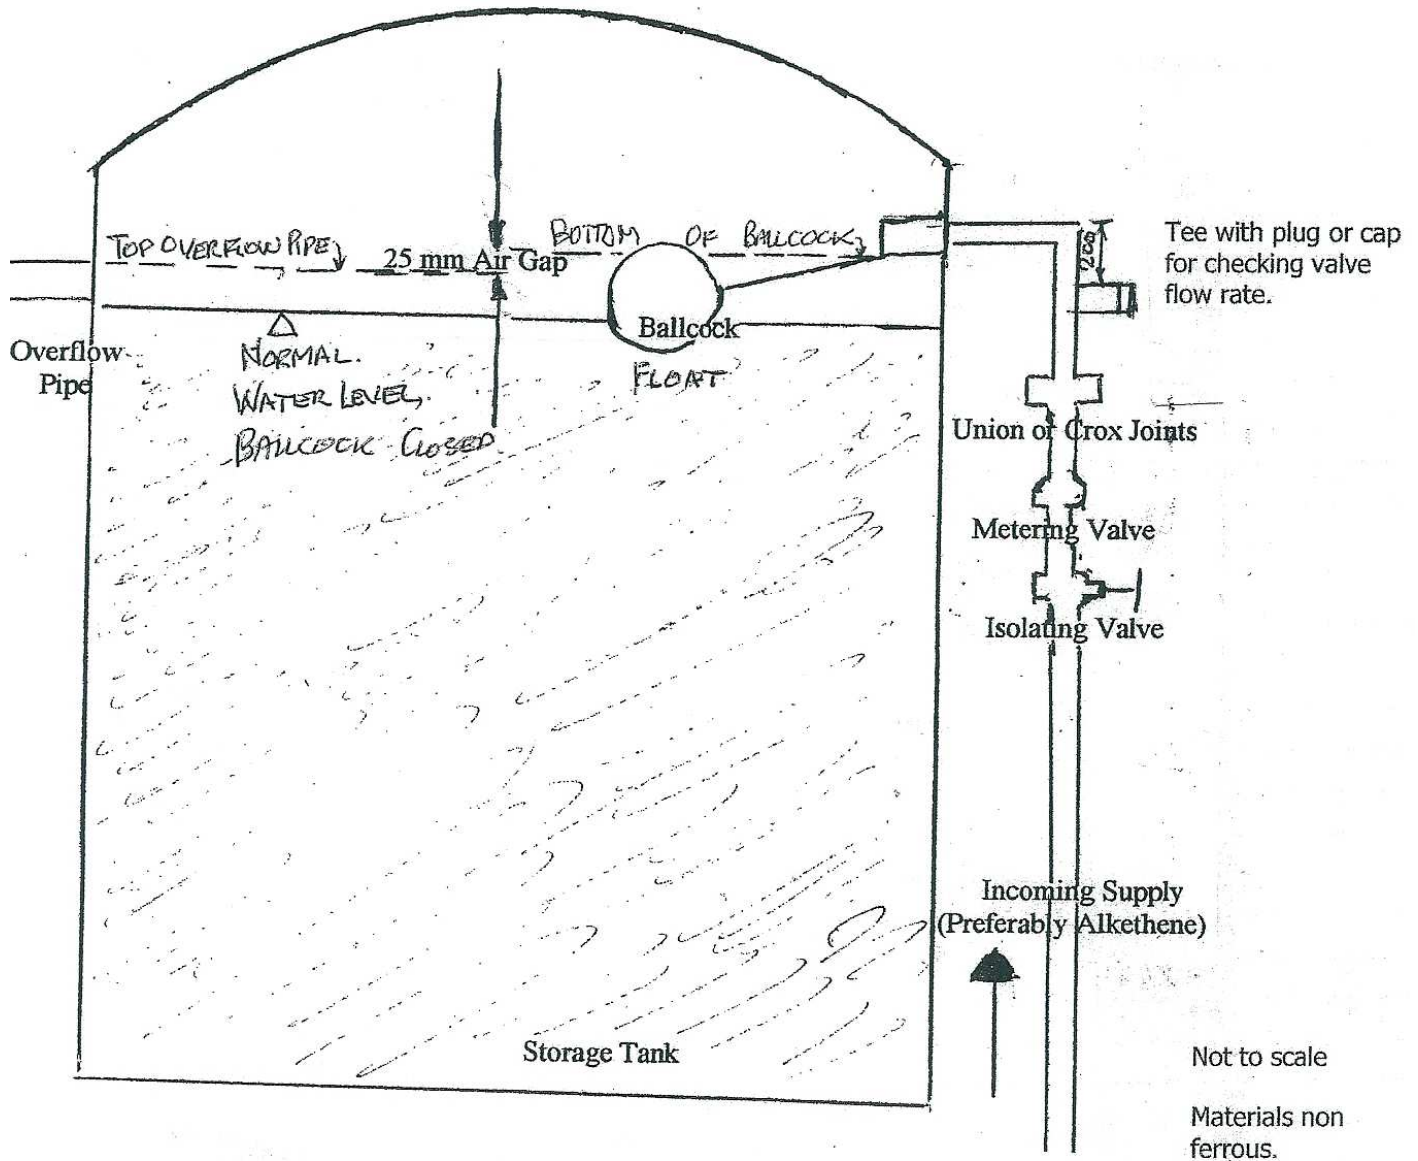 TOP OVERFLOW PIPE
25 mm Air Gap
BOTTOM OF BALLCOCK
200
Tee with plug or cap
for checking valve
flow rate.
Overflow
Pipe
NORMAL.
WATER LEVEL,
BALLCOCK CLOSED.
Ballcock
FLOAT
Union or Crox Joints
Metering Valve
Isolating Valve
Incoming Supply
(Preferably Alkethene)
Storage Tank
Not to scale
Materials non
ferrous.